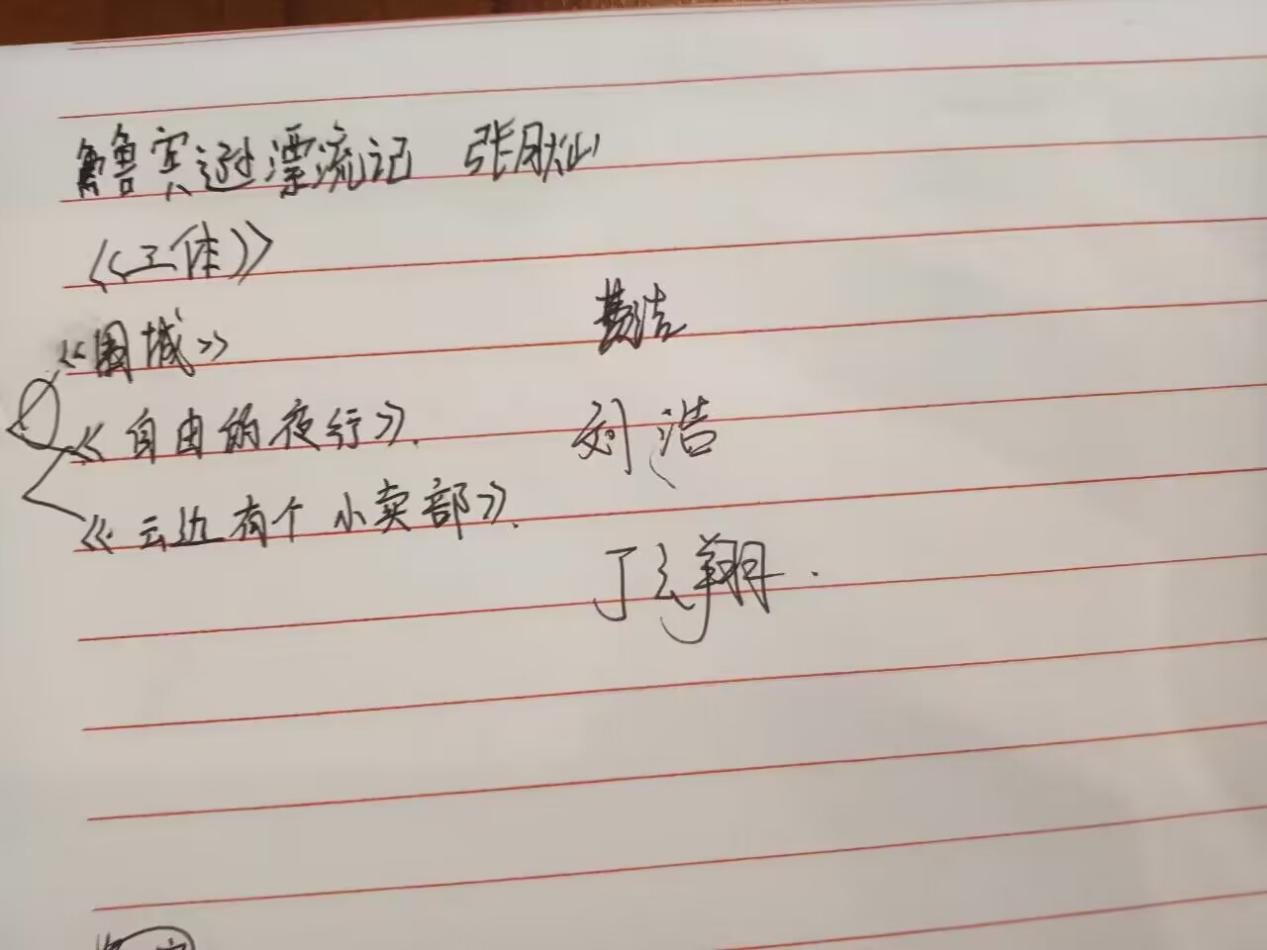 鲁宾逊漂流记 张
《三体》
《围城》
《自由的夜行》. 刘浩
《云边有个小卖部》.
丁玄翔.